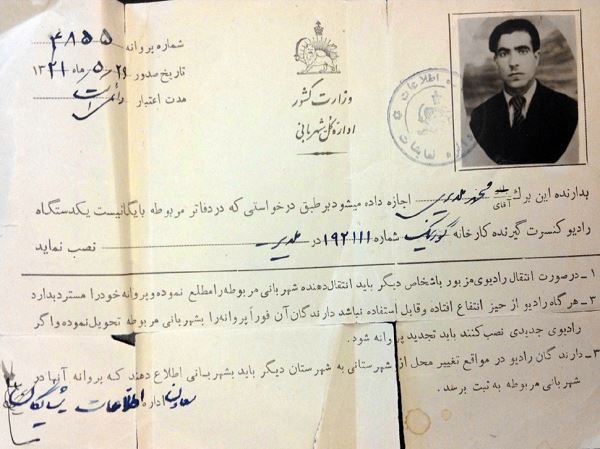 شماره پروانه ۴۸۵۵
تاریخ صدور ۲۹ ر ۵ ماه ۱۳۲۱
مدت اعتبار دائمی است
وزارت کشور
اداره کل شهربانی
اطلاعات
بدارنده این برگ آقای محمد اجازه داده میشود بر طبق درخواستی که در دفاتر مربوطه بایگانیست یکدستگاه
رادیو کنسرت گیرنده کارخانه شماره ۱۹۲۱۱۱ در نصب نماید
۱ــ در صورت انتقال رادیوی مزبور باشخاص دیگر باید انتقال دهنده شهربانی مربوطه را مطلع نموده و پروانه خود را مسترد بدارد
۲ــ هر گاه رادیو از حیز انتفاع افتاده وقابل استفاده نباشد دارندگان آن فوراً پروانه را بشهربانی مربوطه تحویل نموده و اگر
رادیوی جدیدی نصب کنند باید تجدید پروانه شود.
۳ــ دارند گان رادیو در مواقع تغییر محل از شهرستانی به شهرستان دیگر باید بشهربانی اطلاع دهند که پروانه آنها در
شهربانی مربوطه به ثبت برسد.
اداره اطلاعات